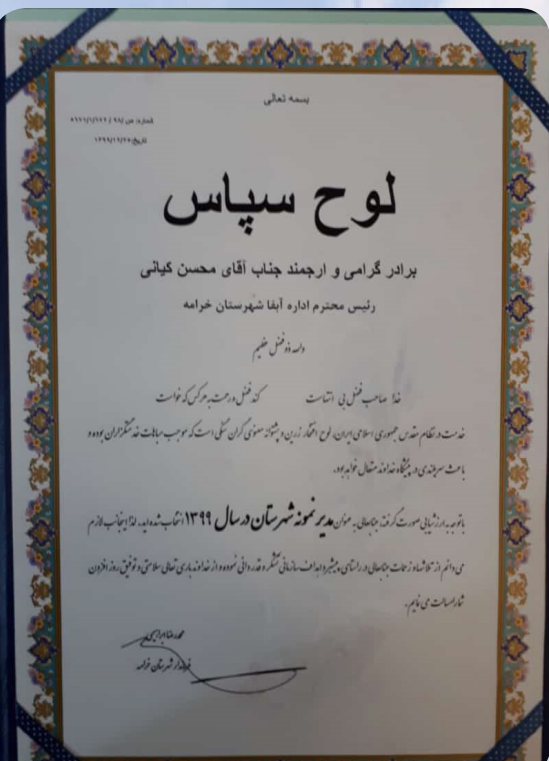 بسمه تعالی
شماره: ص /۹۸ /
تاریخ:
لوح سپاس
برادر گرامی و ارجمند جناب آقای محسن کیانی
رئیس محترم اداره آبفا شهرستان خرامه
والله ذو فضل عظیم
خدا صاحب فضل بی انتهاست کند فضل و رحمت به هر کس که خواست
خدمت در نظام مقدس جمهوری اسلامی ایران، لوح افتخار زرین و پشتوانه معنوی گران سنگی است که موجب مباهات خدمتگزاران بوده و
باعث سربلندی در پیشگاه خداوند متعال خواهد بود.
باتوجه به ارزشیابی صورت گرفته، جنابعالی به عنوان مدیر نمونه شهرستان در سال ۱۳۹۹ انتخاب شده اید. لذا اینجانب لازم
می دانم از تلاشها و زحمات جنابعالی در راستای پیشبرد اهداف سازمانی تشکر و قدردانی نموده و از خداوند باری تعالی سلامتی و توفیق روز افزون
شما را مسالت می نمایم.
محمدرضا ابراهیمی
فرماندار شهرستان خرامه